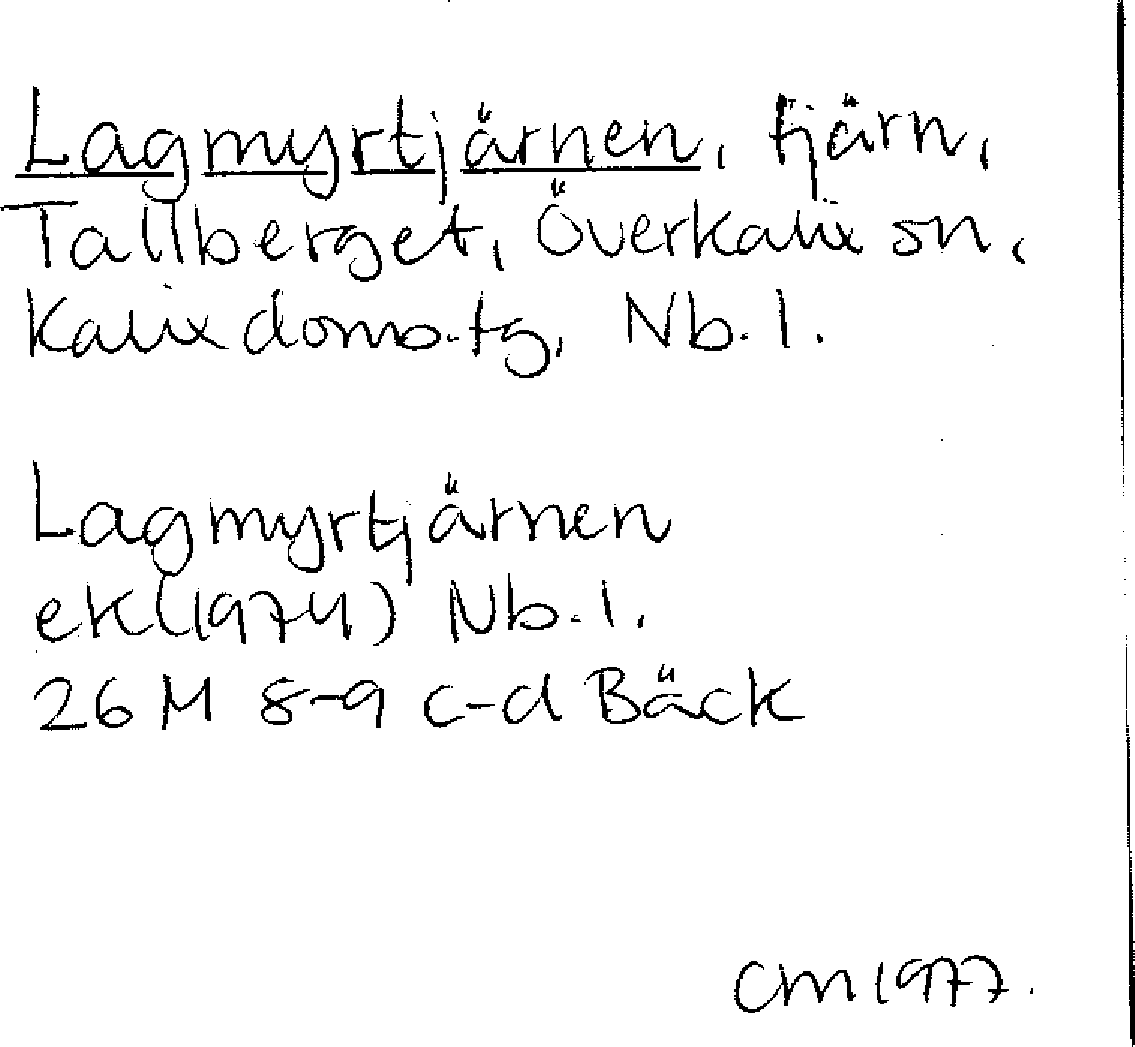 Lagmyrtjärnen, tjärn,
Tallberget, Överkalix sn,
Kalix doms.tg, Nb.l.
Lagmyrtjärnen
ek(1974) Nb.l.
26 M 8-9 c-d Bäck
CM 1977.